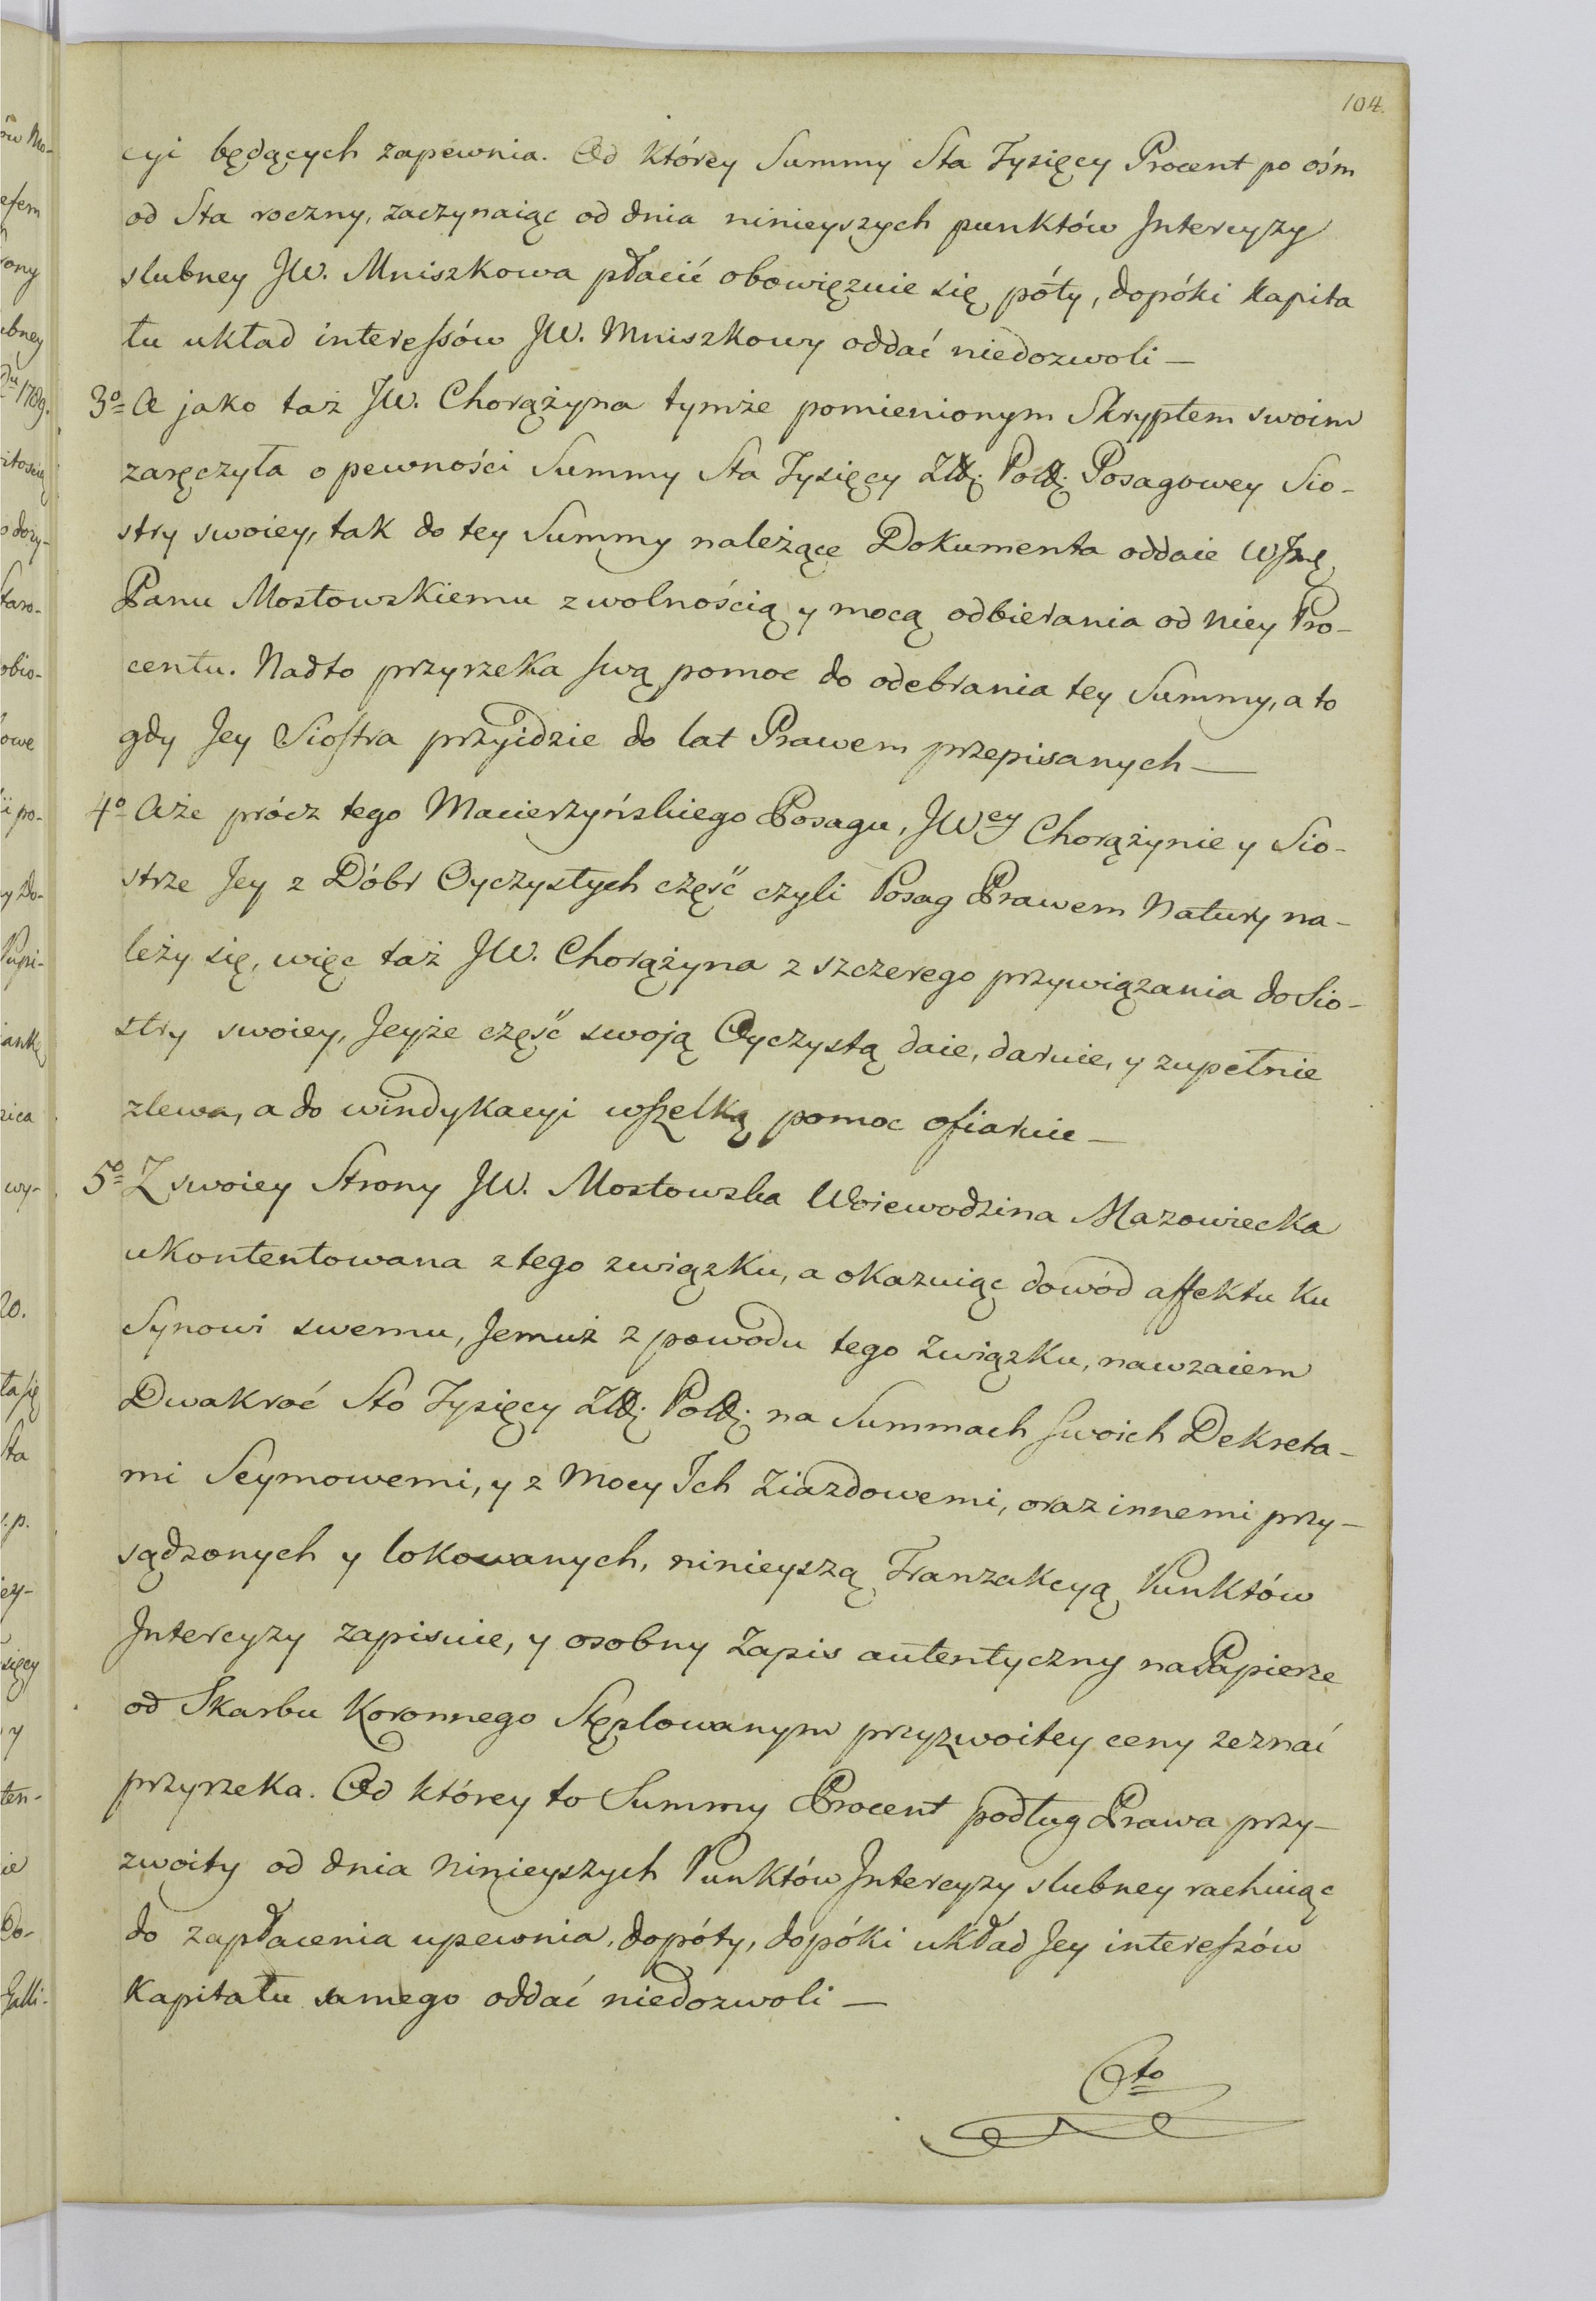 104.
cyi będących zapewnia. Od którey Summy Sta Tysięcy Procent po ośm
od Sta roczny, zaczynaiąc od dnia ninieyszych punktów Intercyzy
slubney JW. Mniszkowa płacić obowięzuie się póty, dopóki kapita
łu układ interessów JW. Mniszkowy oddać niedozwoli —
3º A jako taż JW. Chorążyna tymże pomienionym Skryptem swoim
zaręczyła o pewności Summy Sta Tysięcy Złł. Poll. Posagowey Sio-
stry swoiey, tak do tey Summy należące Dokumenta oddaie
Panu Mostowskiemu z wolnością y mocą odbierania od niey Pro-
centu. Nadto przyrzeka swą pomoc do odebrania tey Summy, a to
gdy Jey Siostra przyidzie do lat Prawem przepisanych —
4º Aże prócz tego Macierzyńskiego Posagu, JWey Chorążynie y Sio-
strze Jey z Dóbr Oyczystych część czyli Posag Prawem Natury na-
leży się, więc taż JW. Chorążyna z szczerego przywiązania do Sio-
stry swoiey, Jeyże część swoją Oyczystą daie, daruie, y zupełnie
zlewa, a do windykacyi wszelką pomoc ofiaruie —
5º Z swoiey Strony JW. Mostowska Woiewodzina Mazowiecka
ukontentowana z tego związku, a okazuiąc dowód affektu ku
Synowi swemu, Jemuż z powodu tego związku, nawzaiem
Dwakroć Sto Tysięcy Złł. Poll. na Summach swoich Dekreta-
mi Seymowemi, y z Mocy Ich Ziazdowemi, oraz innemi przy-
sądzonych y lokowanych, ninieyszą Tranzakcyą Punktów
Intercyzy zapisuie, y osobny Zapis autentyczny na Papierze
od Skarbu Koronnego Stęplowanym przyzwoitey ceny zeznać
przyrzeka. Od którey to Summy Procent podług Prawa przy-
zwoity od dnia ninieyszych Punktów Intercyzy slubney rachuiąc
do zapłacenia upewnia, dopóty, dopóki układ Jey interessów
Kapitału samego oddać niedozwoli —
6to